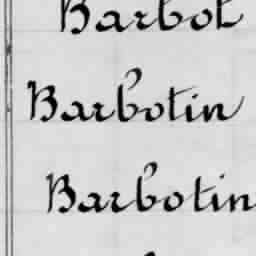 Barbot
Barbotin
Barbotin